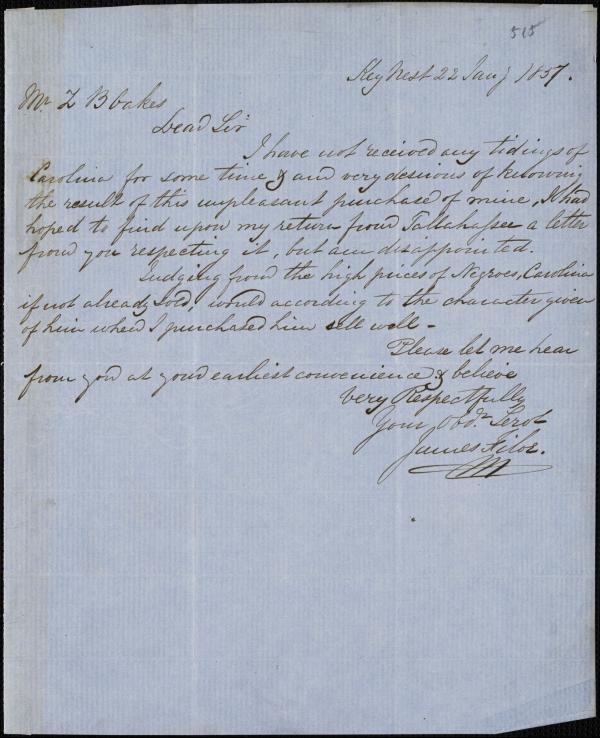 515
Key West 22 Jany 1857.
Mr Z B Oakes
Dear Sir
I have not received any tidings of
Carolina for some time & am very desirous of knowing
the result of this unpleasant purchase of mine, I had
hoped to find upon my return from Tallahassee a letter
from you respecting it, but am disappointed.
Judging from the high prices of Negroes, Carolina
if not already sold, would according to the character given
of him when I purchased him sell well -
Please let me hear
from you at your earliest convenience & believe
Very Respectfully
Your Obdt Servt
James Filor.